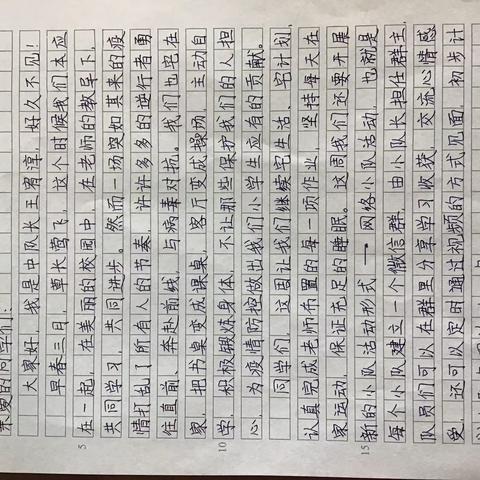 亲爱的同学们：
大家好，我是中队长王宥淳，好久不见！
早春三月，草长莺飞，这个时候我们本应
在一起，在美丽的校园中，在老师的教导下，
共同学习，共同进步。然而一场突如其来的疫
情打乱了所有人的节奏，许许多多的逆行者勇
往直前、奔赴前线，与病毒对抗。我们也宅在
家，把书桌变成课桌，客厅变成操场，主动自
学，积极锻炼身体，不让那些保护我们的人担
心，为疫情防控做出我们小学生应有的贡献。
同学们，这周让我们继续宅生活，宅计划，
认真完成老师布置的每一项作业，坚持每天在
家运动，保证充足的睡眠。这周我们还要开展
新的小队活动形式——网络小队活动，也就是
每个小队建立一个微信群，由小队长担任群主，
队员们可以在群里分享学习收获，交流心情感
受，还可以定时通过视频的方式见面，初步计
5
10
15